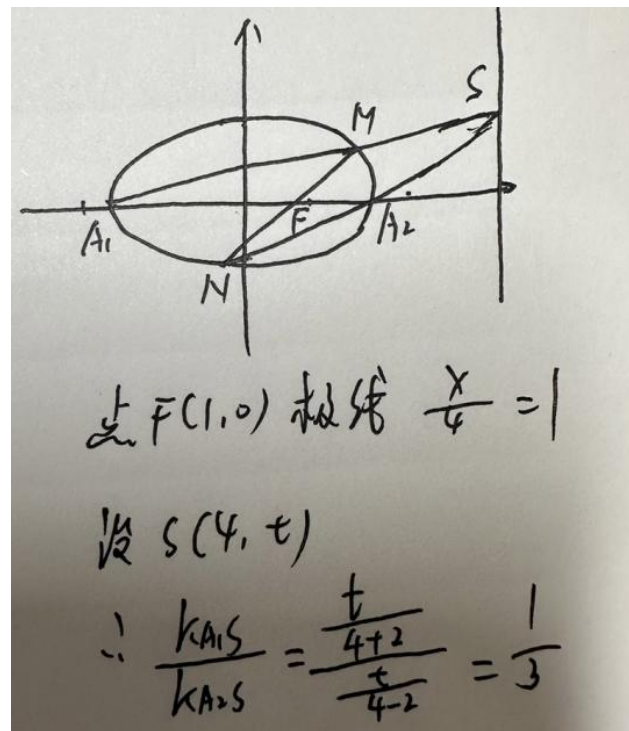 S
M
A₁
F
A₂
N
点F(1,0) 极线 x/4 = 1
设 S(4, t)
∴ kA₁S/kA₂S = (t/(4+2))/(t/(4-2)) = 1/3